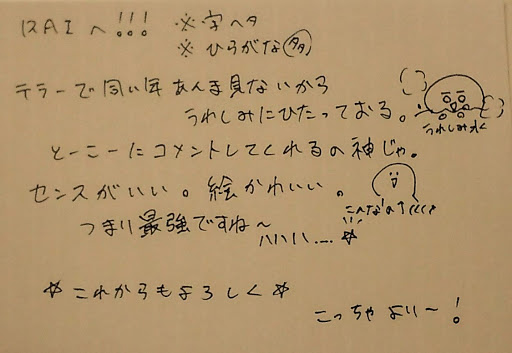 RAIへ!!! ※字ヘタ
※ひらがな多
テラーで同い年あんま見ないから
うれしみにひたっておる。
うれしみ
とーこーにコメントしてくれるの神じゃ。
センスがいい。絵かわいい。
こんなの↑
つまり最強ですね〜
ハハハ....☆
☆これからもよろしく☆
こっちゃより〜!